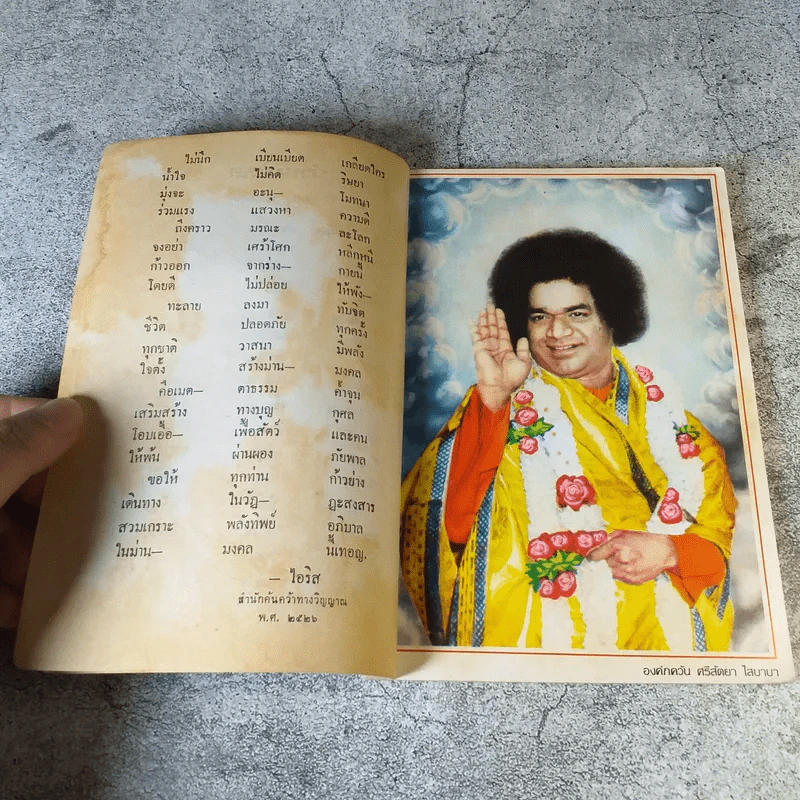 ไม่นึก เบียนเบียด เกลียดใคร
น้ำใจ ไม่คิด ริษยา
มุ่งจะ อะนุ— โมทนา
ร่วมแรง แสวงหา ความดี
ถึงคราว มรณะ ละโลก
จงอย่า เศร้าโศก หลีกหนี
ก้าวออก จากร่าง— กายนี้
โดยดี ไม่ปล่อย ให้พัง—
ทะลาย ลงมา ทับจิต
ชีวิต ปลอดภัย ทุกครั้ง
ทุกชาติ วาสนา มีพลัง
ใจตั้ง สร้างม่าน— มงคล
คือเมต— ตาธรรม ค้ำจุน
เสริมสร้าง ทางบุญ กุศล
โอบเอื้อ— เพื่อสัตว์ และคน
ให้พ้น ผ่านผอง ภัยพาล
ขอให้ ทุกท่าน ก้าวย่าง
เดินทาง ในวัฏ— ฏะสงสาร
สวมเกราะ พลังทิพย์ อภิบาล
ในม่าน— มงคล นี้เทอญ.
— ไอริส
สำนักค้นคว้าทางวิญญาณ
พ.ศ. ๒๕๒๖
องค์ภควัน ศรีสัตยา ไสบาบา